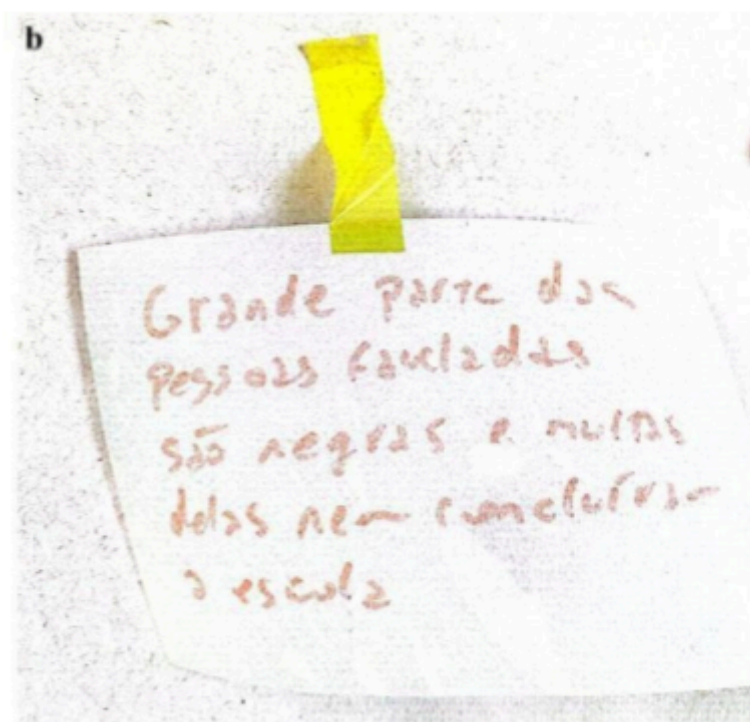 b
Grande parte das
pessoas faveladas
são negras e muitas
delas nem concluíram
a escola